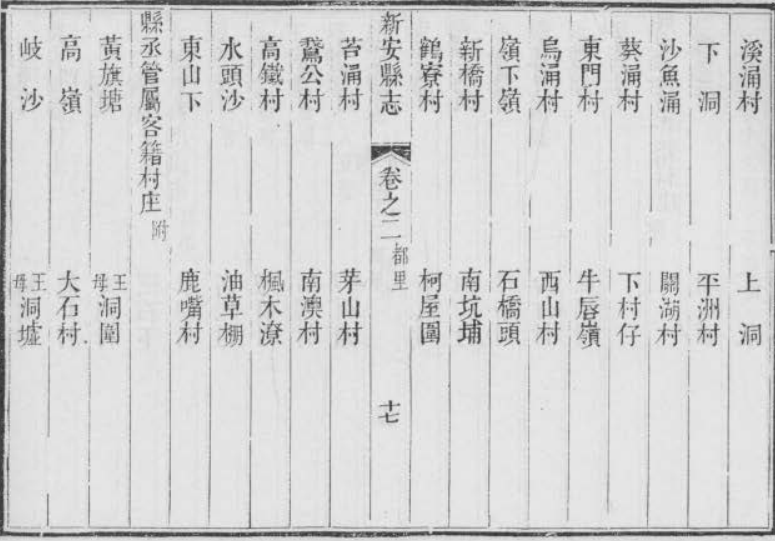 溪涌村 上洞
下洞 平洲村
沙魚涌 關湖村
葵涌村 下村仔
東門村 牛唇嶺
烏涌村 西山村
嶺下嶺 石橋頭
新橋村 南坑埔
鶴寮村 柯屋圍
新安縣志 卷之二 都里 十七
苔涌村 芽山村
鵞公村 南澳村
高鐵村 楓木潦
水頭沙 油草棚
東山下 鹿嘴村
縣丞管屬客籍村庄附
黃旗塘 王母洞圍
高嶺 大石村
岐沙 王母洞墟